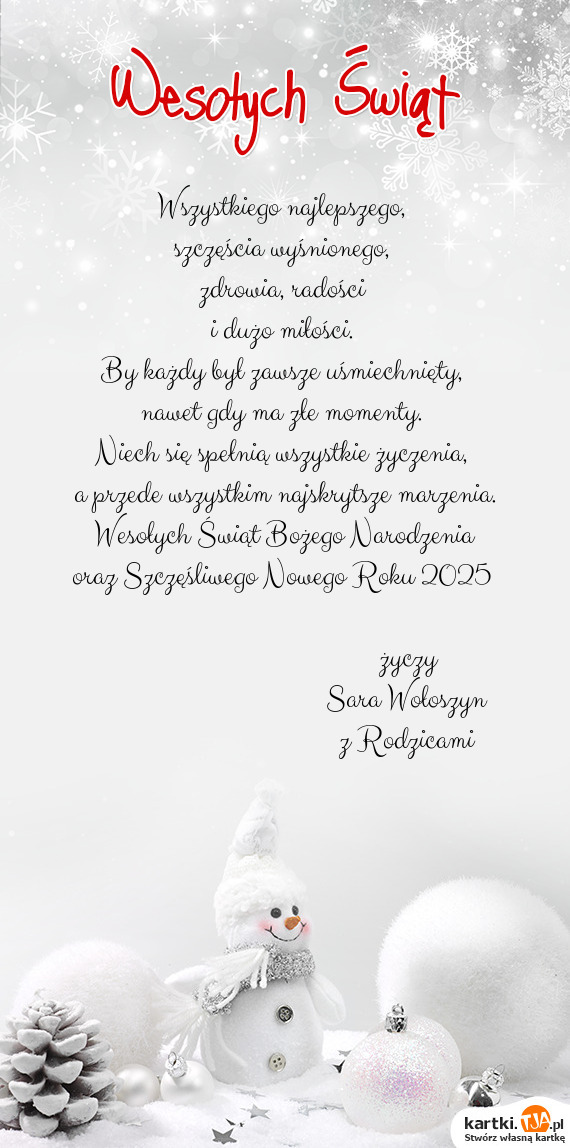 Wesołych Świąt
Wszystkiego najlepszego,
szczęścia wyśnionego,
zdrowia, radości
i dużo miłości.
By każdy był zawsze uśmiechnięty,
nawet gdy ma złe momenty.
Niech się spełnią wszystkie życzenia,
a przede wszystkim najskrytsze marzenia.
Wesołych Świąt Bożego Narodzenia
oraz Szczęśliwego Nowego Roku 2025
życzy
Sara Wołoszyn
z Rodzicami
kartki.TJA.pl
Stwórz własną kartkę